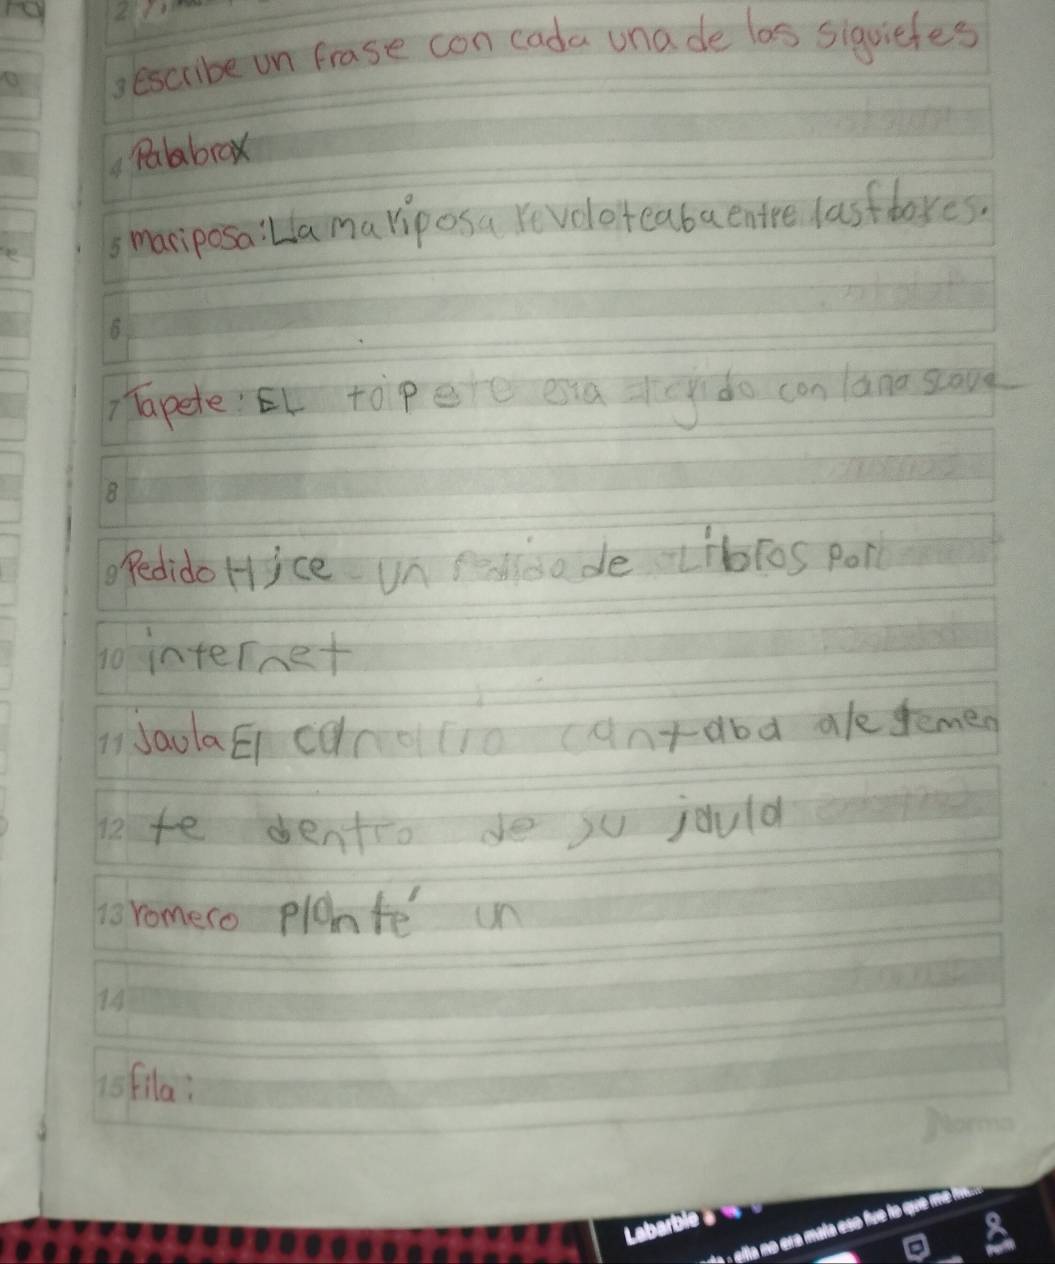 3 Escribe un frase con cada una de las siguietes
4 Palabrax
5 mariposa: La mariposa revoloteaba entre las flores.
6
7 Tapete: EL tapete era con lana
8
9 Pedido Hice un de Libros por
10 internet
11 Jaula El canario cantaba alegemen
12 te dentro de su jaula
13 romero planté un
14
15 fila:
Norma
Labarbie
ella no era mala eso fue lo que me